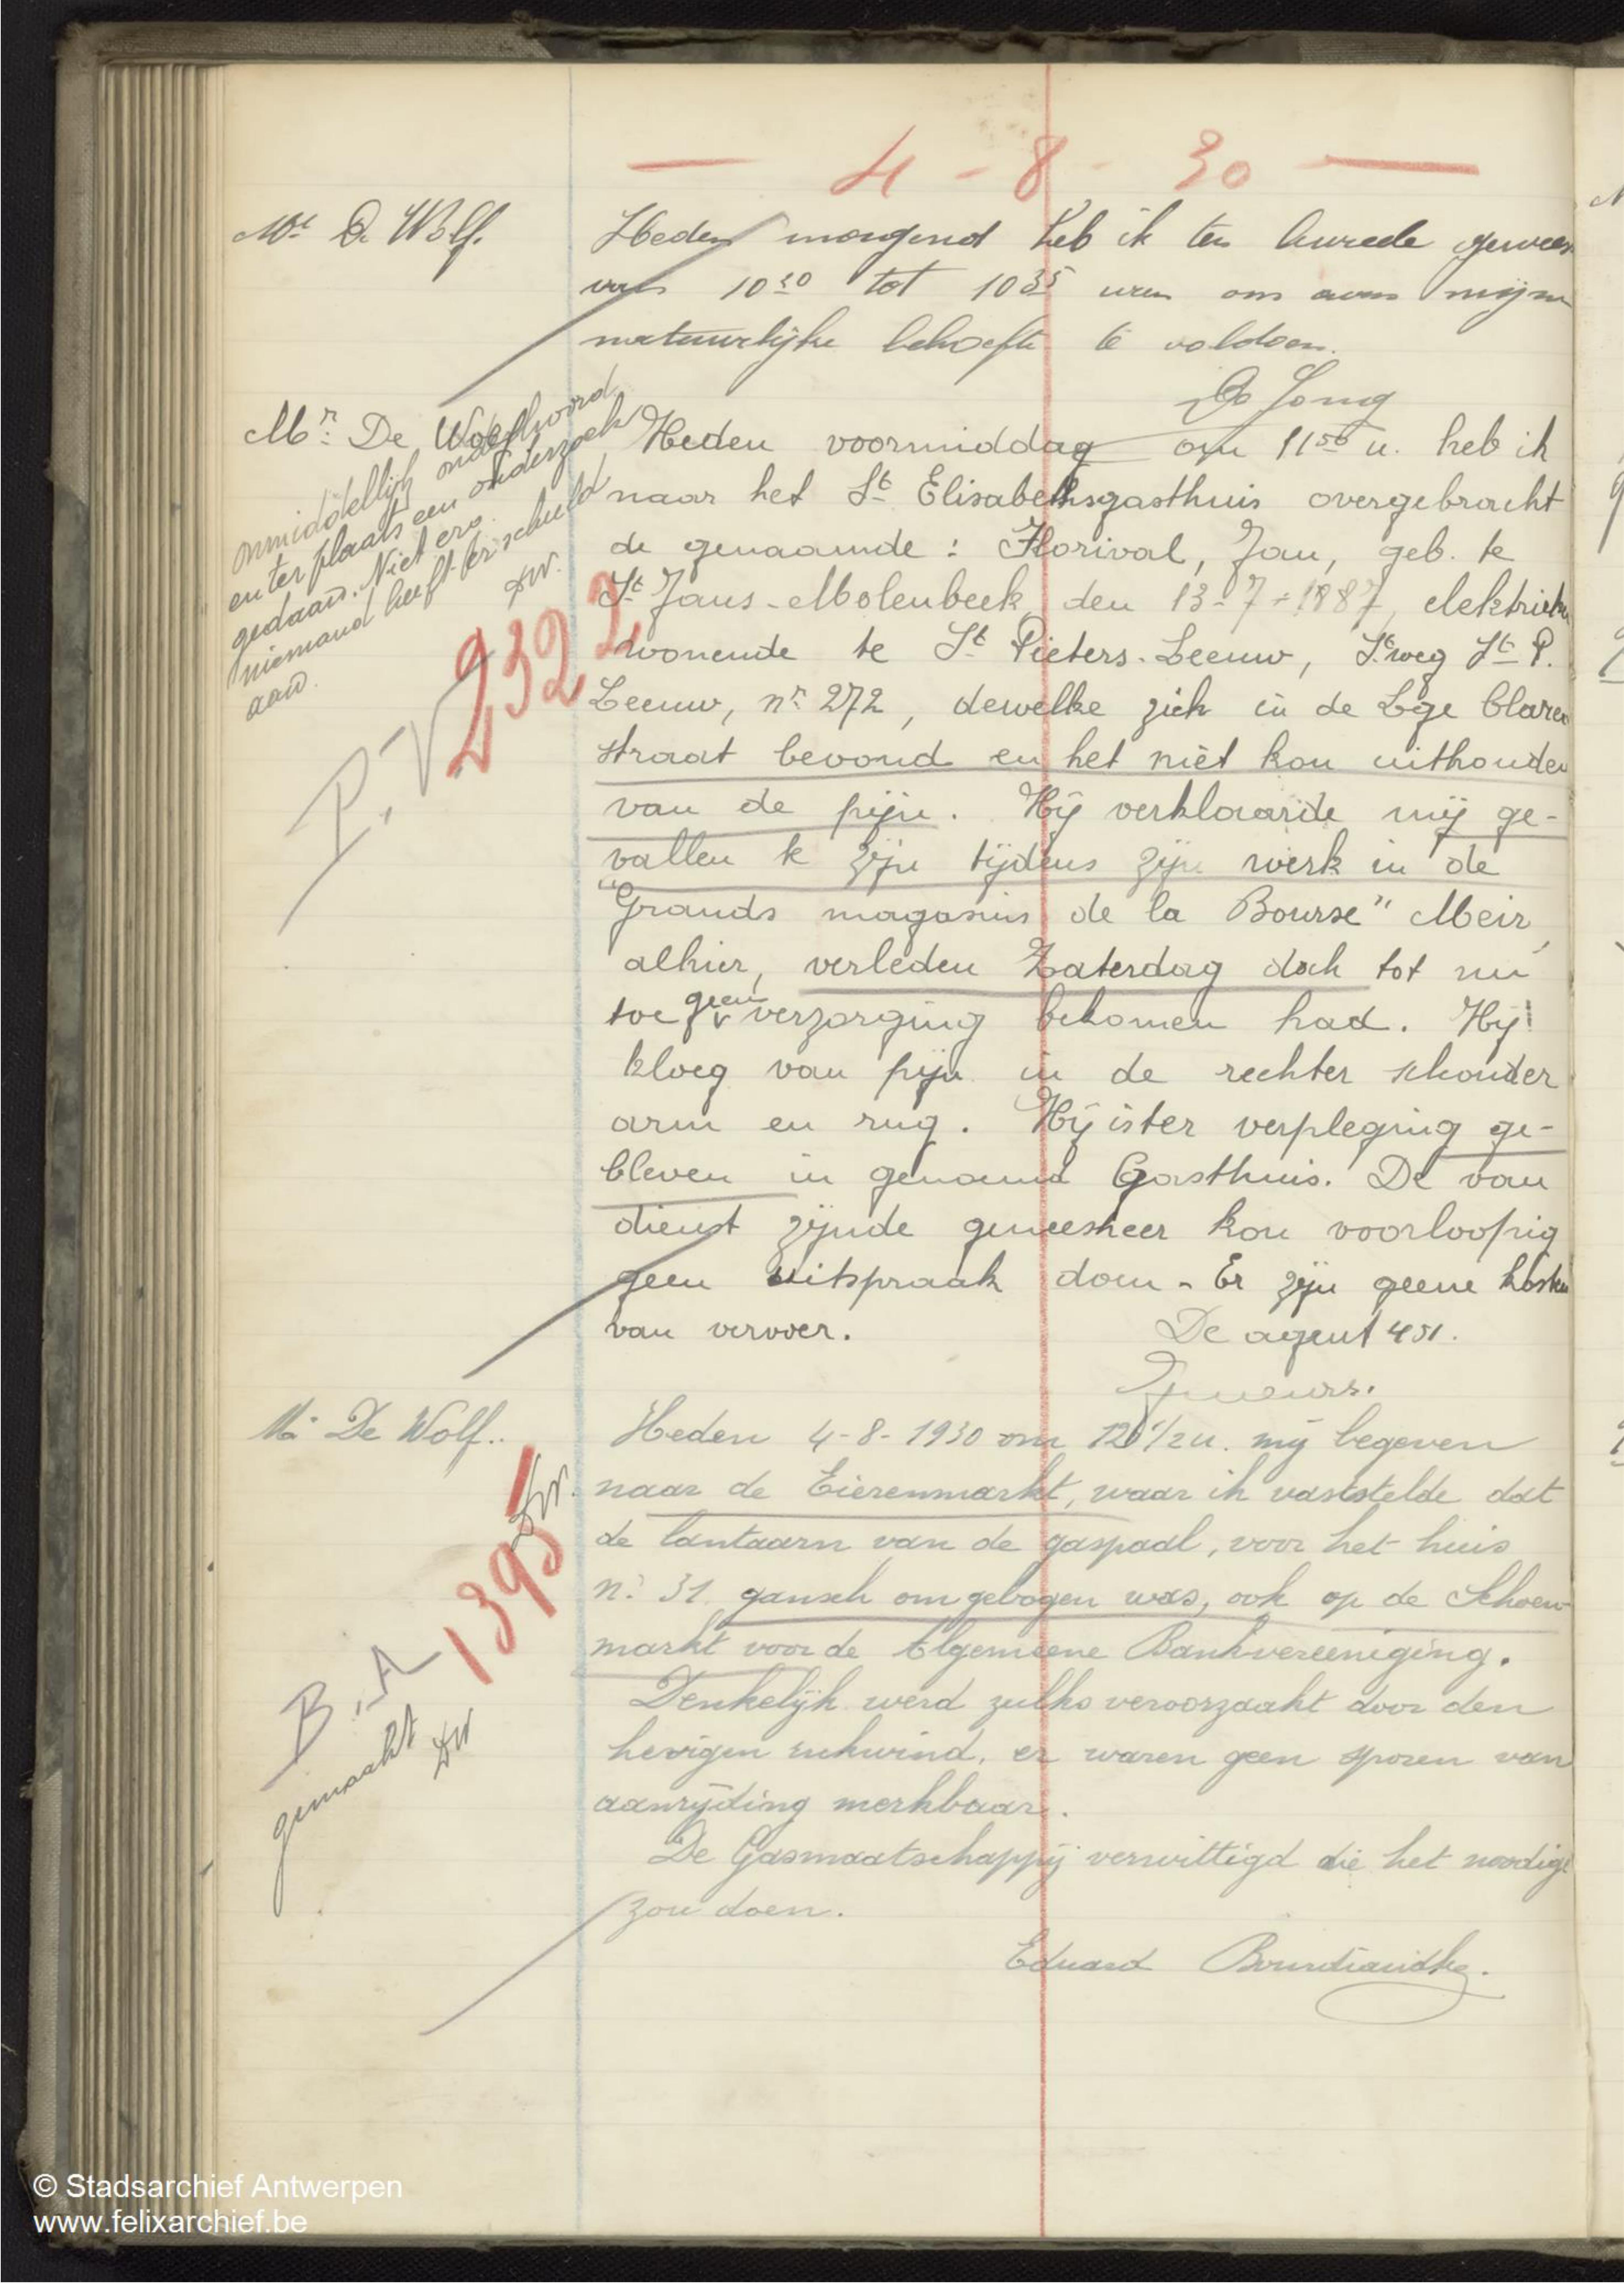 — 4 - 8 - 30 —
Mr De Wolf.
Heden morgend heb ik ten bureele geweest
van 10 30 tot 10 35 uren om aan mijne
natuurlijke behoefte te voldoen.
De Jong
Mr: De Wolf
onmiddellijk onderhoord
en ter plaats een onderzoek
gedaan. Niet erg.
niemand heeft er schuld
aan.
DW.
P.V 2322
Heden voormiddag om 11 50 u. heb ik
naar het St Elisabethsgasthuis overgebracht
de genaamde : Florival, Jan, geb. te
St Jans-Molenbeek, den 13-7-1887, elektrieker
wonende te St Pieters-Leeuw, Stweg St P.
Leeuw, nr 272, dewelke zich in de Lge Claren
straat bevond en het niet kon uithouden
van de pijn. Hij verklaarde mij ge-
vallen te zijn tijdens zijn werk in de
"Grands magasins de la Bourse" Meir,
alhier, verleden Zaterdag doch tot nu
toe geen verzorging bekomen had. Hij
kloeg van pijn in de rechter schouder
arm en rug. Hij is ter verpleging ge-
bleven in genaamd Gasthuis. De van
dienst zijnde geneesheer kon voorloopig
geen uitspraak doen - Er zijn geene kosten
van vervoer.
De agent 451.
Mr De Wolf..
DW.
B.A 1395
gemaakt
DW
Heden 4-8-1930 om 12 1/2 u. mij begeven
naar de Eierenmarkt, waar ik vaststelde dat
de lantaarn van de gaspaal, voor het huis
n: 31 gansch omgebogen was, ook op de Schoen-
markt voor de Algemeene Bankvereeniging.
Denkelijk werd zulks veroorzaakt door den
hevigen rukwind, er waren geen sporen van
aanrijding merkbaar.
De Gasmaatschappij verwittigd die het noodige
zou doen.
Eduard
© Stadsarchief Antwerpen
www.felixarchief.be